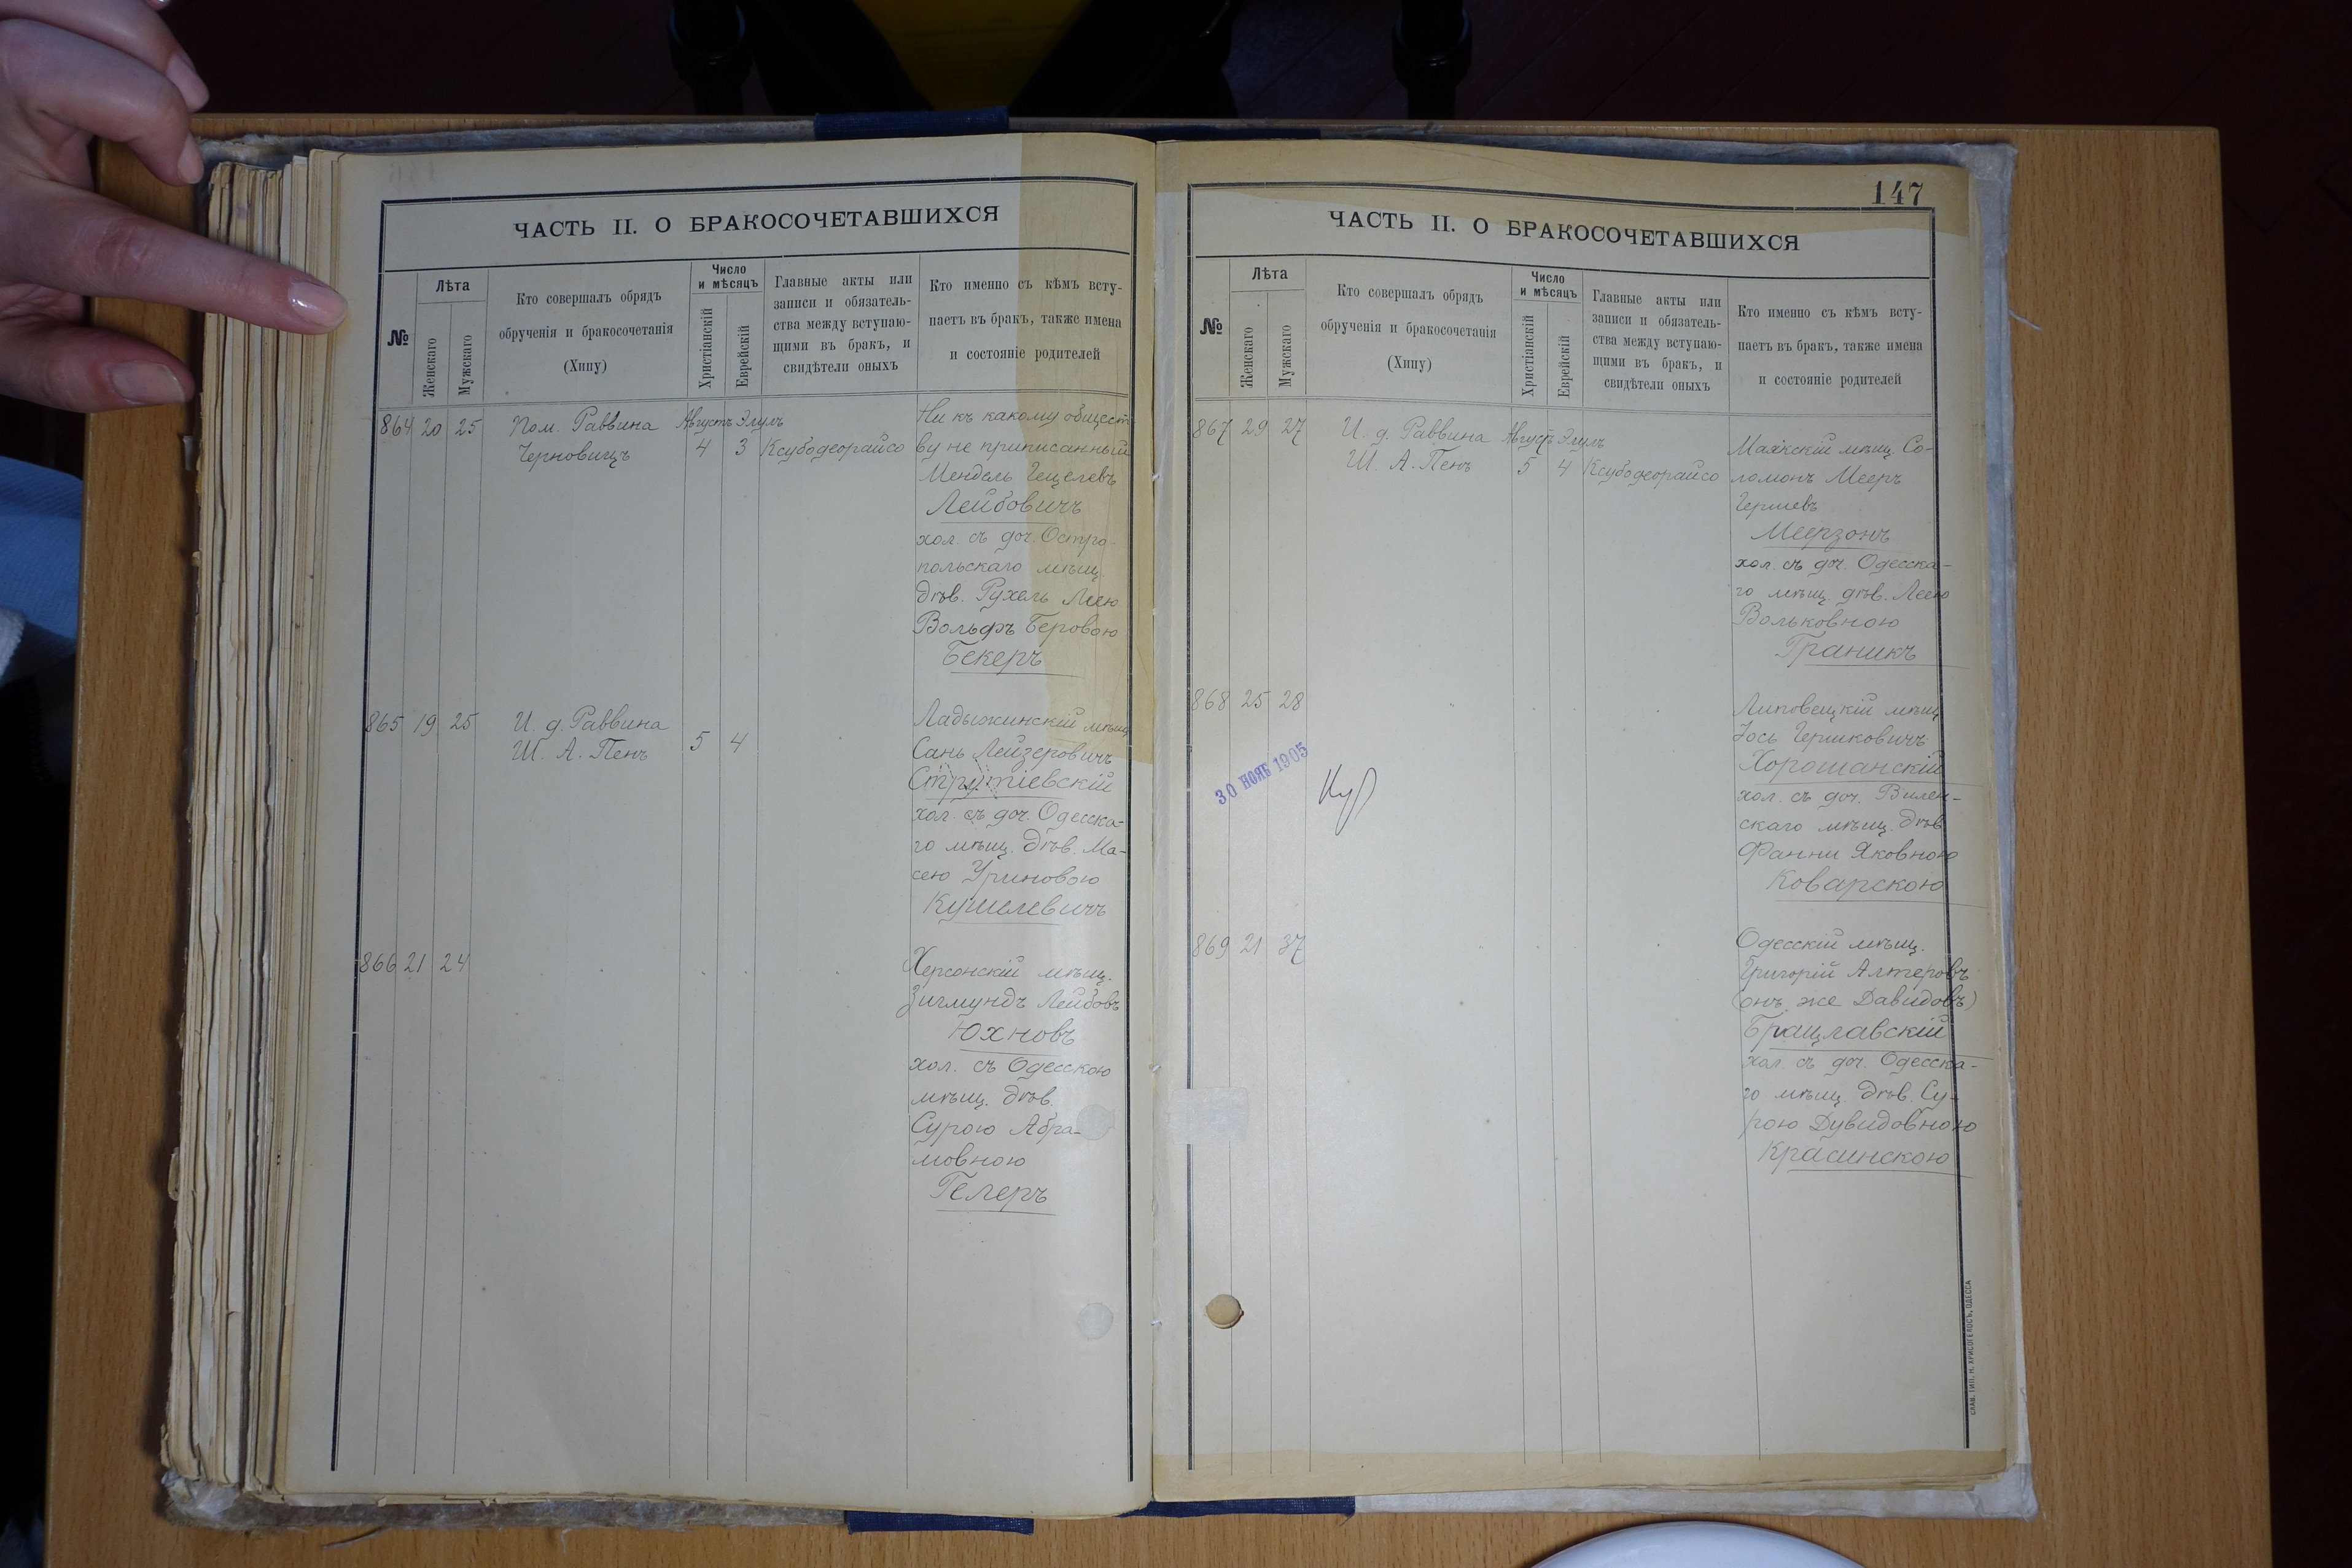 ЧАСТЬ II. О БРАКОСОЧЕТАВШИХСЯ
№
Лѣта
Женскаго
Мужскаго
Кто совершалъ обрядъ
обрученія и бракосочетанія
(Хипу)
Число
и мѣсяцъ
Христіанскій
Еврейскій
Главные акты или
записи и обязатель-
ства между вступаю-
щими въ бракъ, и
свидѣтели оныхъ
Кто именно съ кѣмъ всту-
паетъ въ бракъ, также имена
и состояніе родителей
864 20 25
Пом. Раввина
Черновицъ
Августъ Элулъ
4 3 Ксубодеорайсо
Ни къ какому общест-
ву не приписанный
Мендель Гецелевъ
Лейбовичъ
хол. съ доч. Остро-
польскаго мѣщ.
дѣв. Рухель Леею
Вольфъ Беровою
Бекеръ
865 19 25
И. д. Раввина
Ш. А. Пенъ
5 4
Ладыжинскій мѣщ.
Сань Лейзеровичъ
Струтіевскій
хол. съ доч. Одесска-
го мѣщ. дѣв. Ма-
сею Уриновою
Кушелевичъ
866 21 24
Херсонскій мѣщ.
Зигмундъ Лейбовъ
Юхновъ
хол. съ Одесскою
мѣщ. дѣв.
Сурою Абра-
мовною
Гелеръ
147
ЧАСТЬ II. О БРАКОСОЧЕТАВШИХСЯ
№
Лѣта
Женскаго
Мужскаго
Кто совершалъ обрядъ
обрученія и бракосочетанія
(Хипу)
Число
и мѣсяцъ
Христіанскій
Еврейскій
Главные акты или
записи и обязатель-
ства между вступаю-
щими въ бракъ, и
свидѣтели оныхъ
Кто именно съ кѣмъ всту-
паетъ въ бракъ, также имена
и состояніе родителей
867 29 27
И. д. Раввина
Ш. А. Пенъ
Августъ Элулъ
5 4 Ксубодеорайсо
Маякскій мѣщ. Со-
ломонъ Мееръ
Гершевъ
Меерзонъ
хол. съ доч. Одесска-
го мѣщ. дѣв. Леею
Вольковною
Граникъ
868 25 28
Липовецкій мѣщ.
Іось Гершковичъ
Хорошанскій
хол. съ доч. Вилен-
скаго мѣщ. дѣв.
Фанни Яковною
Коварскою
30 НОЯБ 1905
869 21 37
Одесскій мѣщ.
Григорій Алтеровъ
(онъ же Давидовъ)
Брацлавскій
хол. съ доч. Одесска-
го мѣщ. дѣв. Су-
рою Дувидовною
Красинскою
СЛАВ. ТИП. Н. ХРИСОГЕЛОСЪ, ОДЕССА